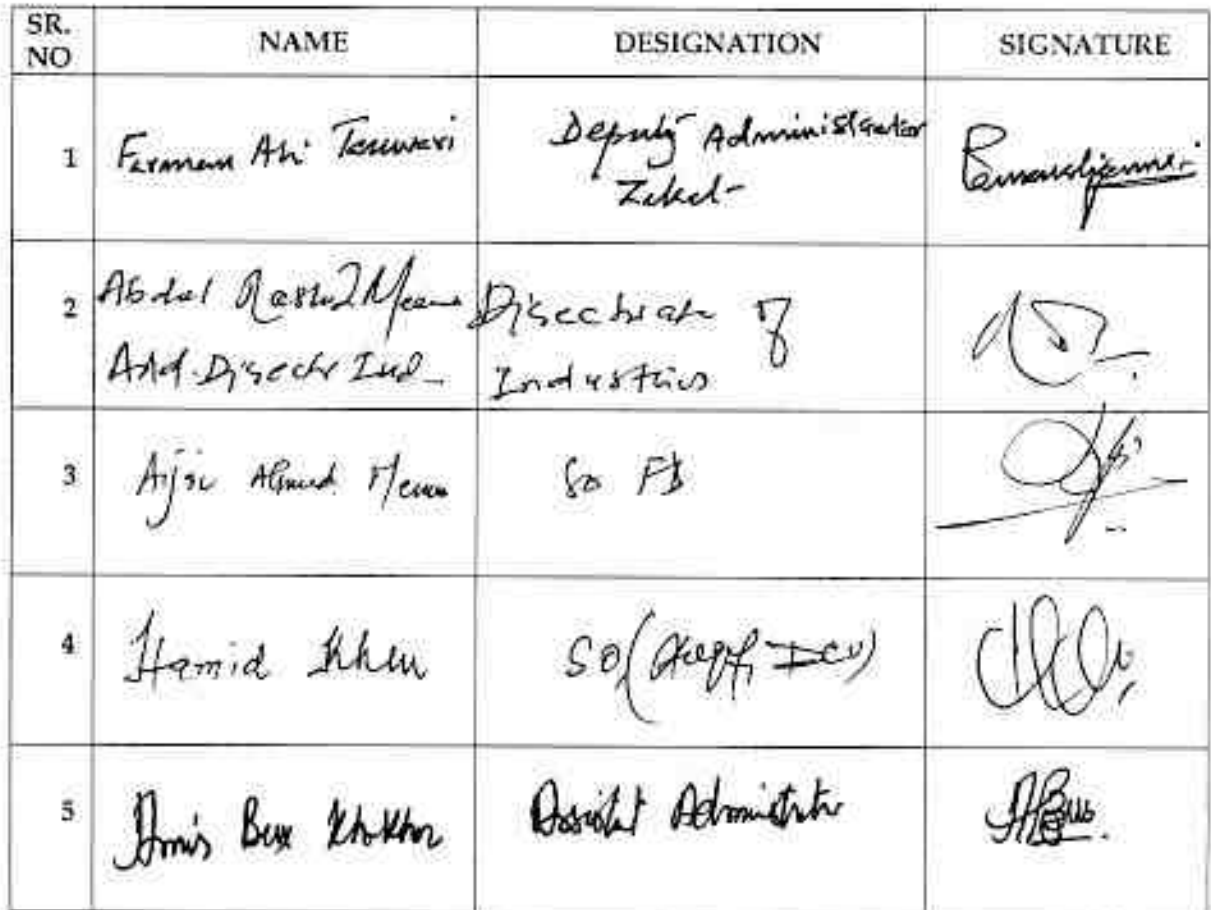 SR. NO
NAME
DESIGNATION
SIGNATURE
1
Farman Ali Tanwari
Deputy Administrator
Zakat
2
Abdul Rashid Memon
Directorate of
Add. Director Ind.
Industries
3
Aijaz Ahmed Memon
SO FD
4
Hamid Khan
SO (
5
Bux Khokhar
Assistant Administrator